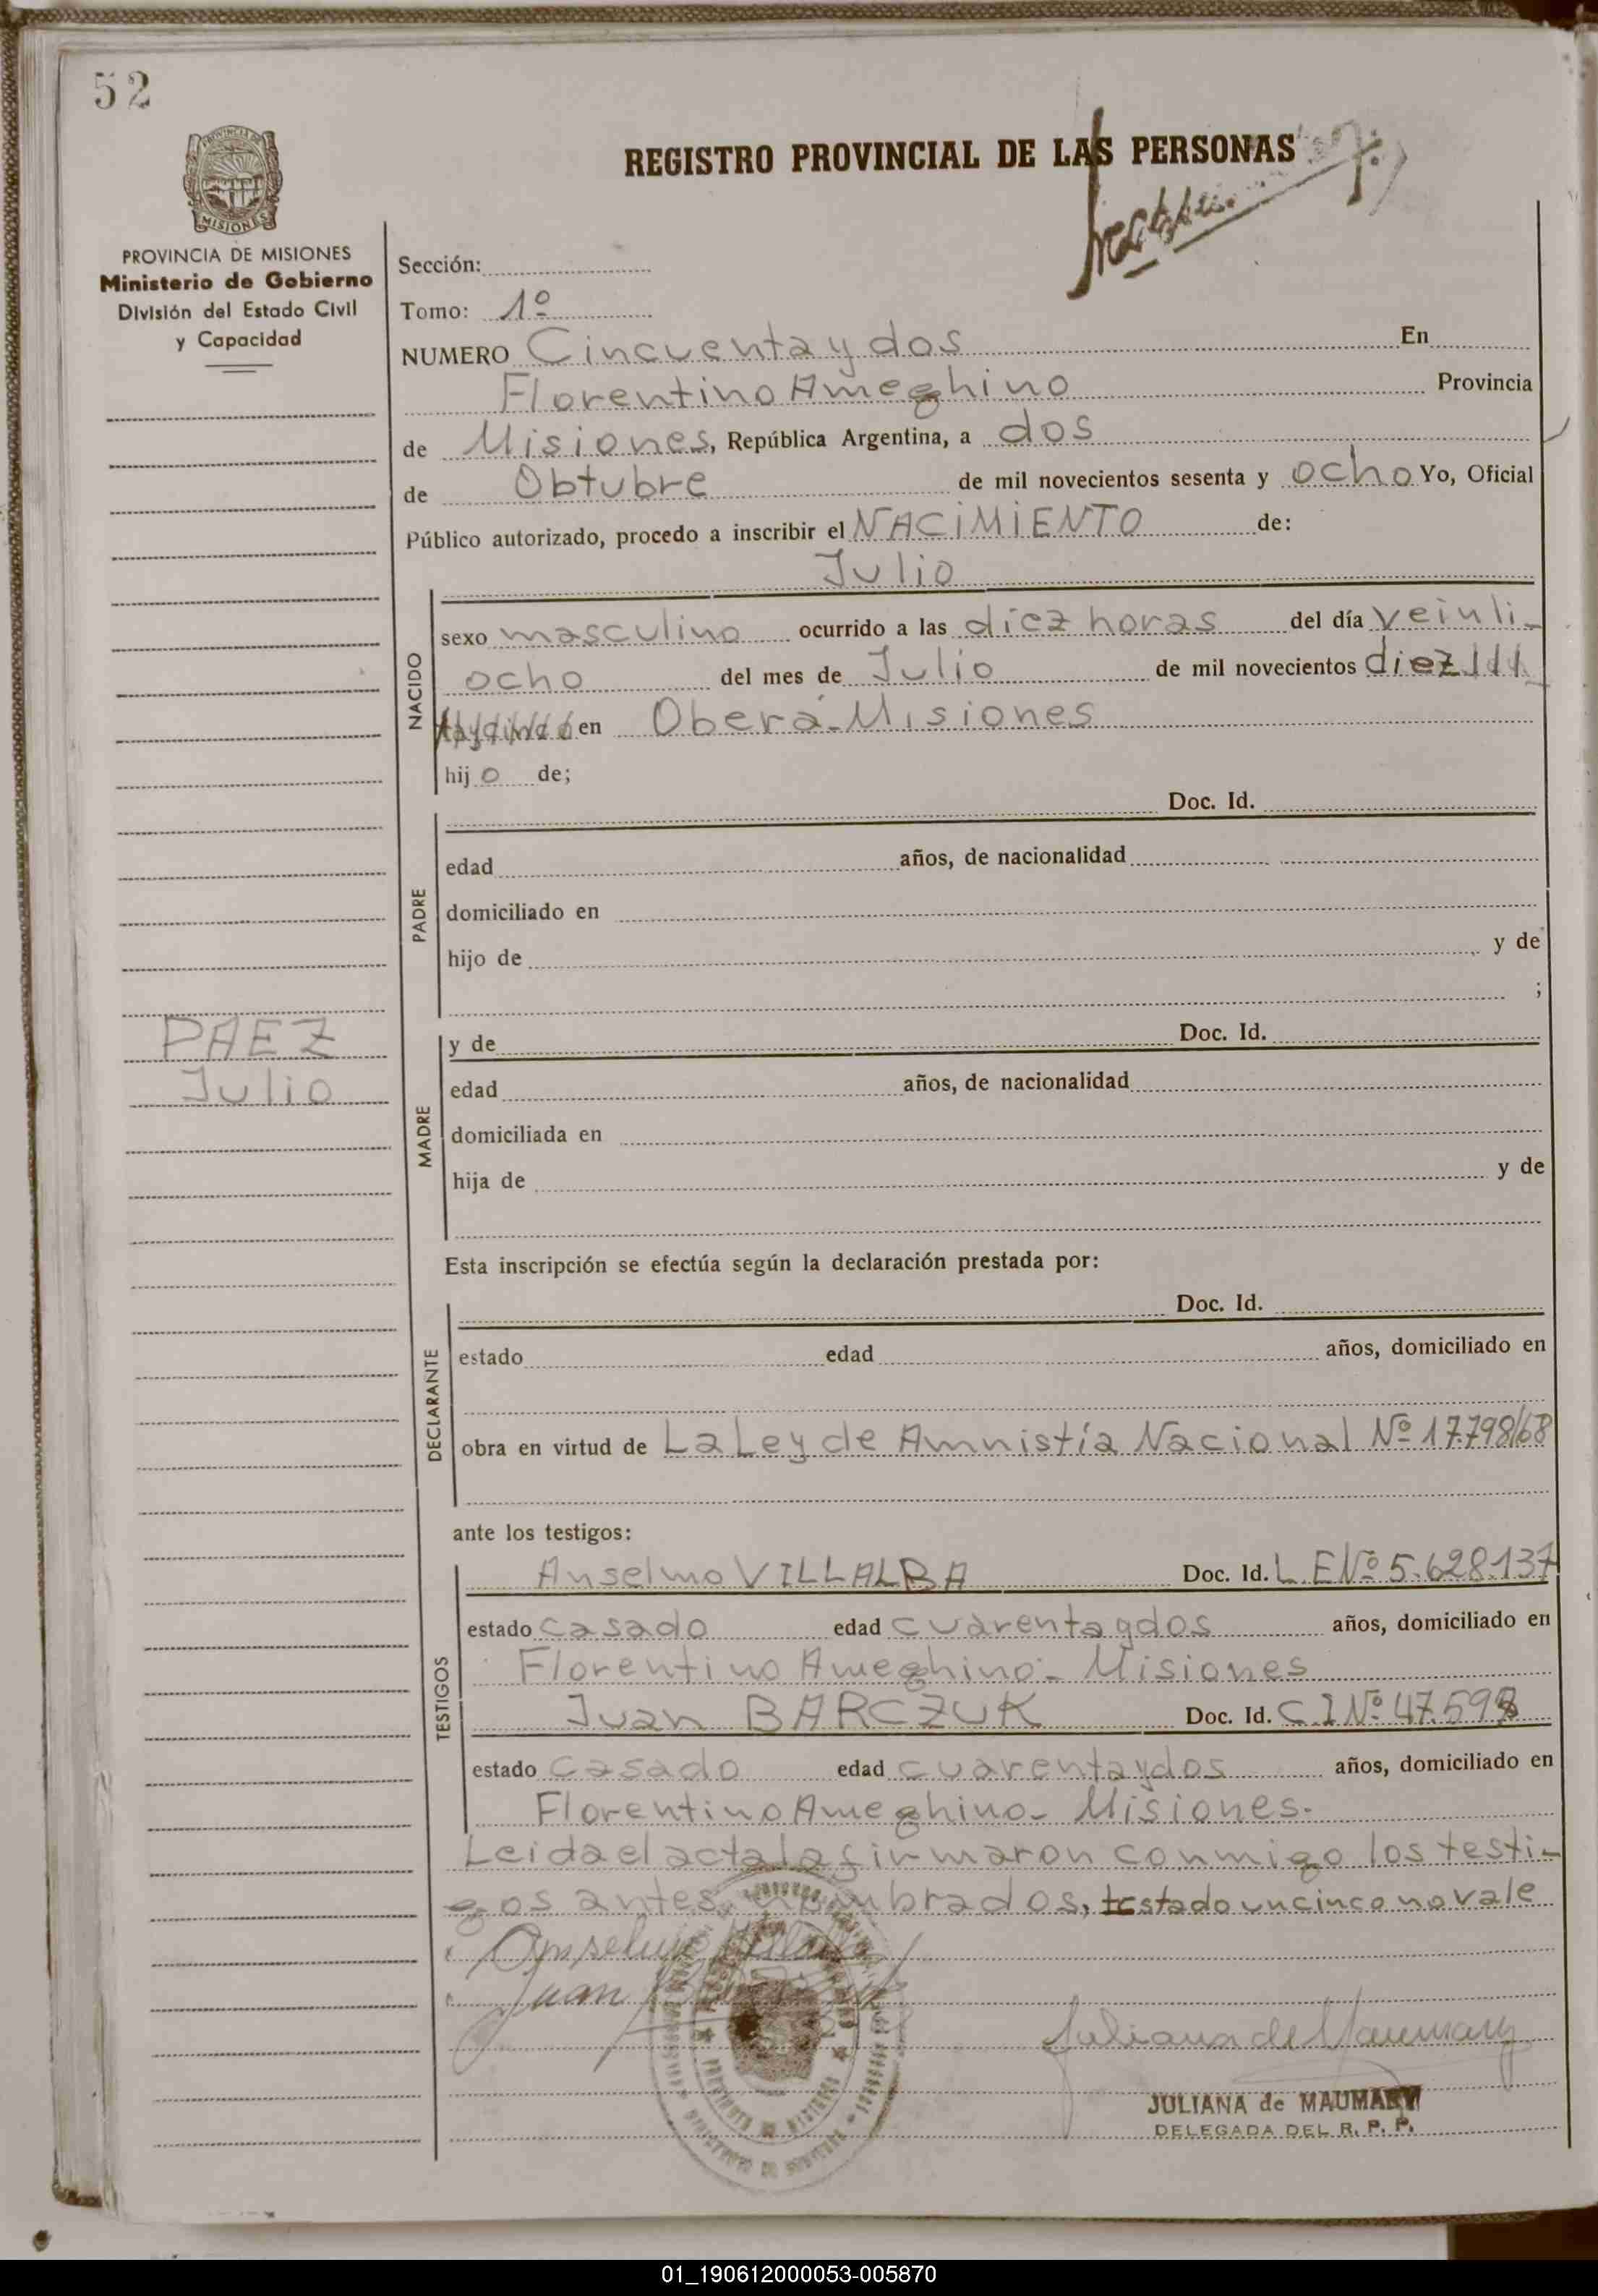 52
PROVINCIA DE
MISIONES
REGISTRO PROVINCIAL DE LAS PERSONAS
PROVINCIA DE MISIONES
Ministerio de Gobierno
División del Estado Civil
y Capacidad
Sección:
Tomo: 1º
NUMERO Cincuenta y dos En
Florentino Ameghino Provincia
de Misiones, República Argentina, a dos
de Obtubre de mil novecientos sesenta y ocho Yo, Oficial
Público autorizado, procedo a inscribir el NACIMIENTO de:
Julio
NACIDO
sexo masculino ocurrido a las diez horas del día veinti-
ocho del mes de Julio de mil novecientos diez
en Oberá-Misiones
hijo de;
Doc. Id.
PADRE
edad años, de nacionalidad
domiciliado en
hijo de y de
;
PAEZ
Julio
MADRE
y de Doc. Id.
edad años, de nacionalidad
domiciliada en
hija de y de
Esta inscripción se efectúa según la declaración prestada por:
DECLARANTE
Doc. Id.
estado edad años, domiciliado en
obra en virtud de La Ley de Amnistía Nacional Nº 17.798/68
ante los testigos:
TESTIGOS
Anselmo VILLALBA Doc. Id. L.E Nº 5.628.137
estado casado edad cuarenta y dos años, domiciliado en
Florentino Ameghino - Misiones
Juan BARCZUK Doc. Id. C.I Nº
estado casado edad cuarenta y dos años, domiciliado en
Florentino Ameghino - Misiones.
Leida el acta la firmaron conmigo los testi-
gos antes nombrados, testado un cinco no vale
Anselmo Villalba
Juan
Juliana de Maumary
JULIANA de MAUMARY
DELEGADA DEL R. P. P.
01_190612000053-005870